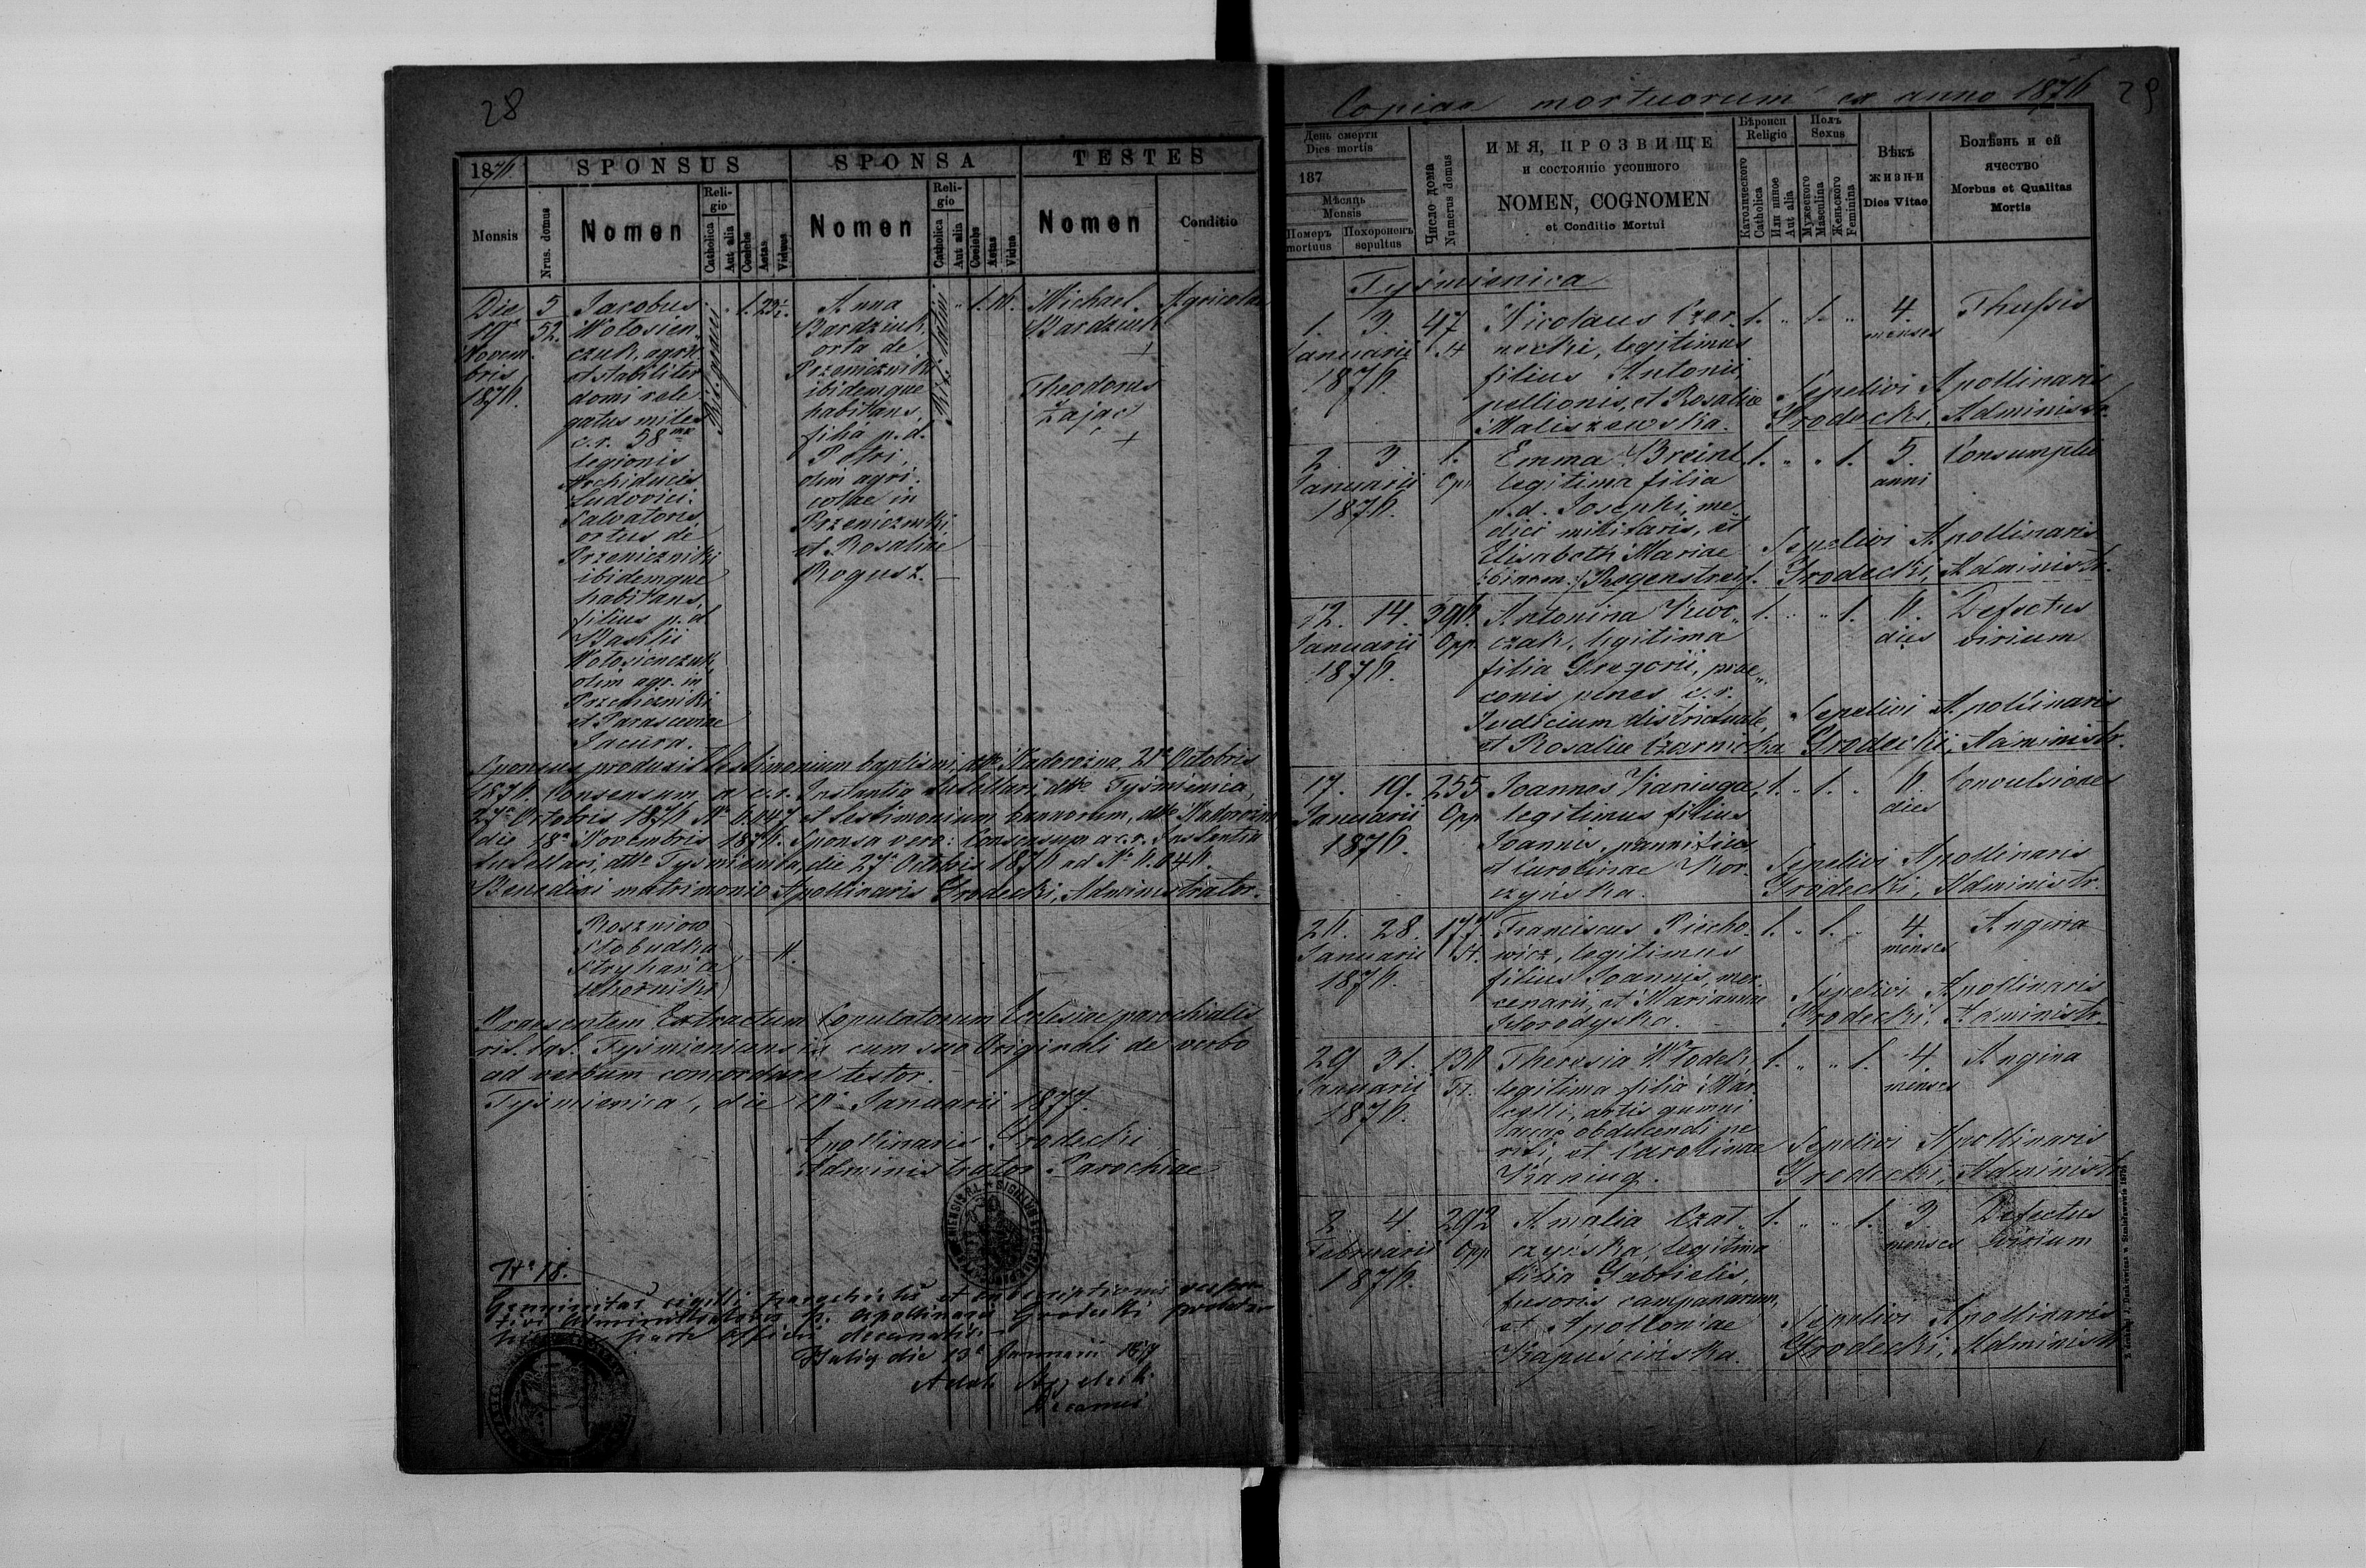 28
1876
SPONSUS
SPONSA
TESTES
Mensis
Nrus. domus
Nomen
Religio
Catholica
Aut alia
Coelebs
Aetas
Viduus
Nomen
Religio
Catholica
Aut alia
Coelebs
Aetas
Vidua
Nomen
Conditio
Die
Novem
bris
1876.
5
52.
Jacobus
Wołosien
czuk, agric.
et stabiliter
domi rele
gatus miles
c. r. 58
legionis
Archiducis
Ludovici
Salvatoris
ortus de
Przeniczniki
ibidemque
habitans,
filius p. d.
Basilii
Wołosienczuk,
olim agr. in
Przeniczniki
et Parascevae
Jacura.
Rit. graeci
1.
Anna
Bardziuk,
orta de
Przeniczniki
ibidemque
habitans,
filia p. d.
Petri,
olim agri-
colae in
Przeniczniki
et Rosaliae
Rogusz.
Rit. latini
1.
Michael
Bardziuk
+
Theodorus
Zając
+
Agricolae
Sponsus produxit Testimonium baptismi, dtto Nadorożna 21 Octobris
1876. Consensum a c. r. Instantia tutellari, dtto Tyśmienica,
27 Octobris 1876 No 6.147 et testimonium bannorum, dtto Nadorożna
die 18a Novembris 1876. Sponsa vero: Consensum a c. r. Instantia
tutellari, dtto Tyśmienica, die 27 Octobris 1876 ad No 6.046.
Benedixi matrimonio Apollinaris Grodecki, Administrator.
Roszniow
Słobudka
Stryhańce
Uhorniki
Praesentem Extractum Copulatorum Ecclesiae parochialis
rit. lat. Tyśmienicensis cum suo Originali de verbo
ad verbum concordare testor.
Tyśmienica, die Januarii 1877.
Apollinaris Grodecki
Administrator Parochiae
No 18.
Genuinitas sigilli parochialis et subscriptionis respec
tivi Administratoris P. Apollinaris Grodecki
parte officii decanalis
Halicz die 13a Januarii 1877
Decanus
Copiae mortuorum ex anno 1876
29
День смерти
Dies mortis
187
Мѣсяць
Mensis
Померъ
mortuus
Похороненъ
sepultus
Число дома
Numerus domus
ИМЯ, ПРОЗВИЩЕ
и состоянiе усопшого
NOMEN, COGNOMEN
et Conditio Mortui
Вѣроисп
Religio
Католического
Catholica
Или инное
Aut alia
Полъ
Sexus
Мужеского
Masculina
Женьского
Feminina
Вѣкъ
жизни
Dies Vitae
Болѣзнь и ей
ячество
Morbus et Qualitas
Mortis
Tyśmienica
1. 3.
Januarii
1876.
47
Nicolaus Czer-
necki, legitimus
filius Antonii,
pellionis, et Rosaliae
Maliszewska.
1. 1.
4.
menses
Thussis
Sepelivi Apollinaris
Grodecki, Administr.
2. 3.
Januarii
1876.
1.
Opp.
Emma Breinl
legitima filia
p. d. Josephi, me-
dici militaris, et
Elisabeth Mariae
binom. Regenstreif.
1. 1.
5.
anni
Consumptio
Sepelivi Apollinaris
Grodecki, Administr.
12. 14.
Januarii
1876.
396.
Opp.
Antonina Kwo-
czak, legitima
filia Gregorii, prae-
conis penes c. r.
Judicium districtuale,
et Rosaliae Czarnicka
1. 1.
6.
dies
Defectus
virium
Sepelivi Apollinaris
Grodecki, Administr.
17. 19.
Januarii
1876.
255
Opp.
Joannes Kaniuga,
legitimus filius
Joannis, pannificis
et Carolinae Kor-
czyńska.
1. 1.
6.
dies
Convulsiones
Sepelivi Apollinaris
Grodecki, Administr.
26. 28.
Januarii
1876.
177
Franciscus Piecho-
wicz, legitimus
filius Joannis, mer-
cenarii, et Mariannae
Horodyska.
1. 1.
4.
menses
Angina
Sepelivi Apollinaris
Grodecki, Administr.
29 31.
Januarii
1876.
136
Theresia Włodek,
legitima filia Mar-
celli, artis gummi
laccae obducendi pe-
riti, et Carolinae
Kaniug.
1. 1.
4.
menses
Angina
Sepelivi Apollinaris
Grodecki, Administr.
2. 4.
Februarii
1876.
292
Opp.
Amalia Czaj-
czyńska, legitima
filia Gabrielis,
fusoris campanarum,
et Apolloniae
Kapuścińska.
1. 1.
3.
menses
Defectus
virium
Sepelivi Apollinaris
Grodecki, Administr.